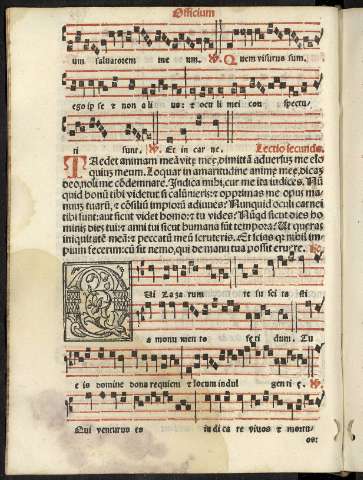 Officium
um saluatorem me um. ℣. Quem visurus sum.
ego ip se & non ali us: & oculi mei con spectu
ri sunt. ℣. Et in car ne. Lectio secunda.
Taedet animam meā vitę męę, dimittā aduersus me elo
quiū meum. Loquar in amaritudine animę męę, dicaʒ
deo, noli me cōdemnare. Indica mihi, cur me ita iudices. Nū
quid bonū tibi videtur, si calūnieris: & opprimas me opus ma
nuum tuarū, & cōsiliū impiorū adiuues? Nunquid oculi carnei
tibi sunt: aut sicut videt homo: & tu videbis? Nūqd sicut dies ho
minis dies tui: & anni tui sicut humana sūt tempora? Ut queras
iniquitatē meā: & peccatū meū scruteris. Et scias qr nihil im
pium fecerim: cū sit nemo, qui de manu tua possit eruere. ℟.
Ui Lazarum re su sci ta sti
a monu men to fę ti dum. Tu
e is domine dona requiem & locum indul gen ti ę. ℣.
Qui venturus es iudi ca re viuos & mortu
os: